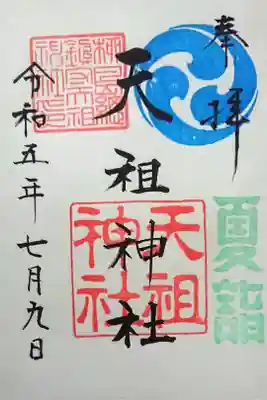 奉拝
天祖神社
天祖
神社
夏詣
令和五年七月九日